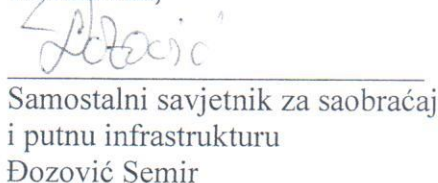 Samostalni savjetnik za saobraćaj
i putnu infrastrukturu
Đozović Semir